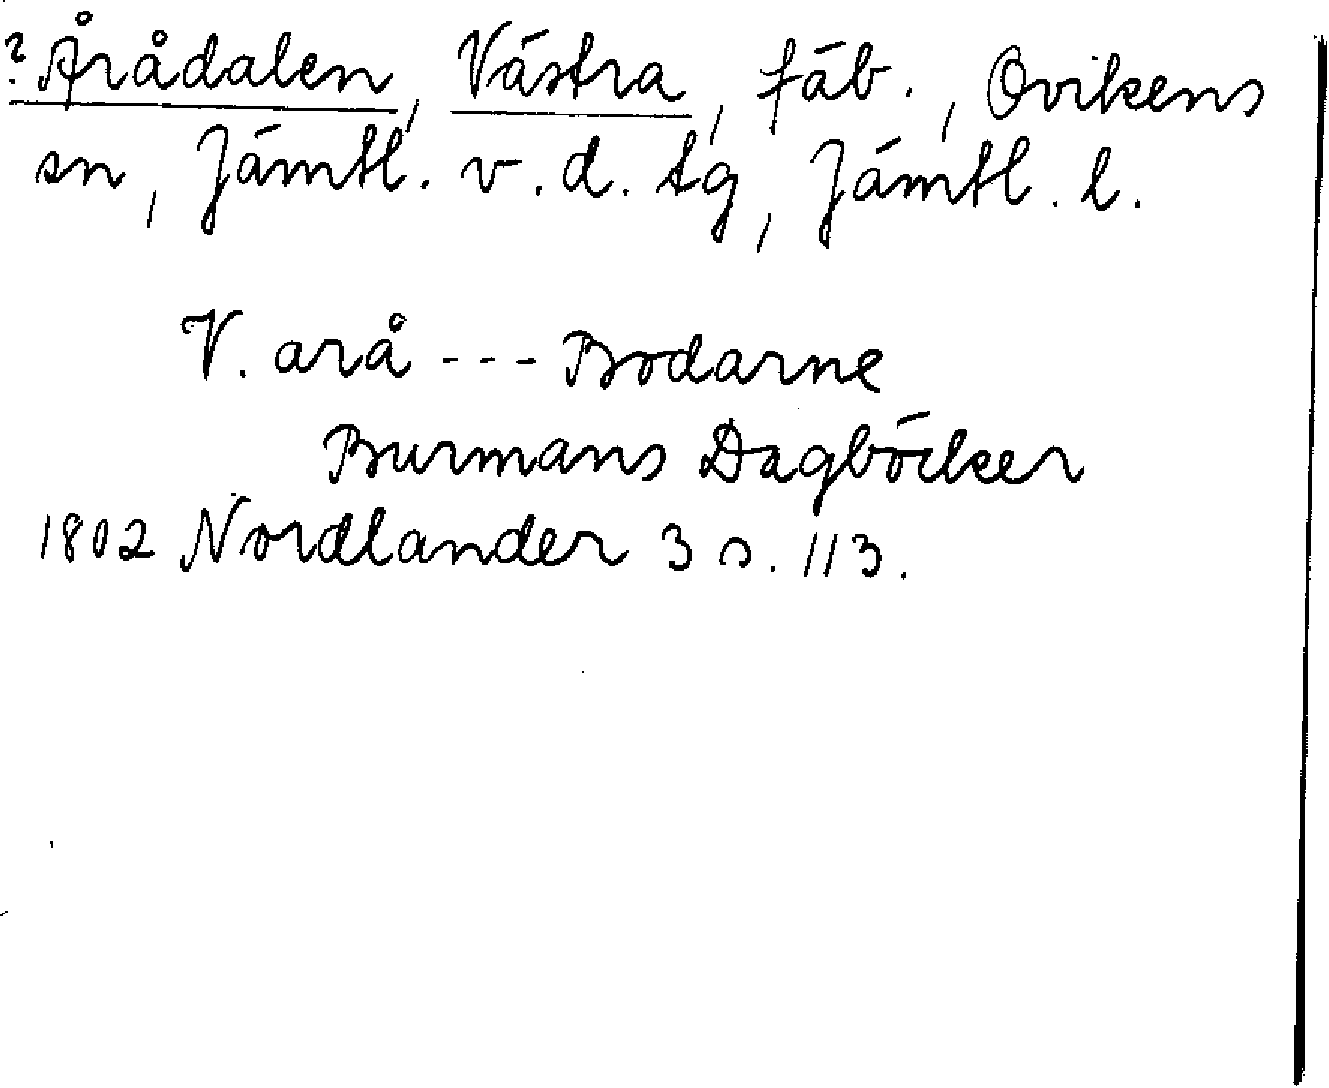 ? Årådalen, Västra, fäb., Ovikens
sn, Jämtl. v. d. tg, Jämtl. l.
V. arå --- Bodarne
Burmans Dagböcker
1802 Nordlander 3 s. 113.